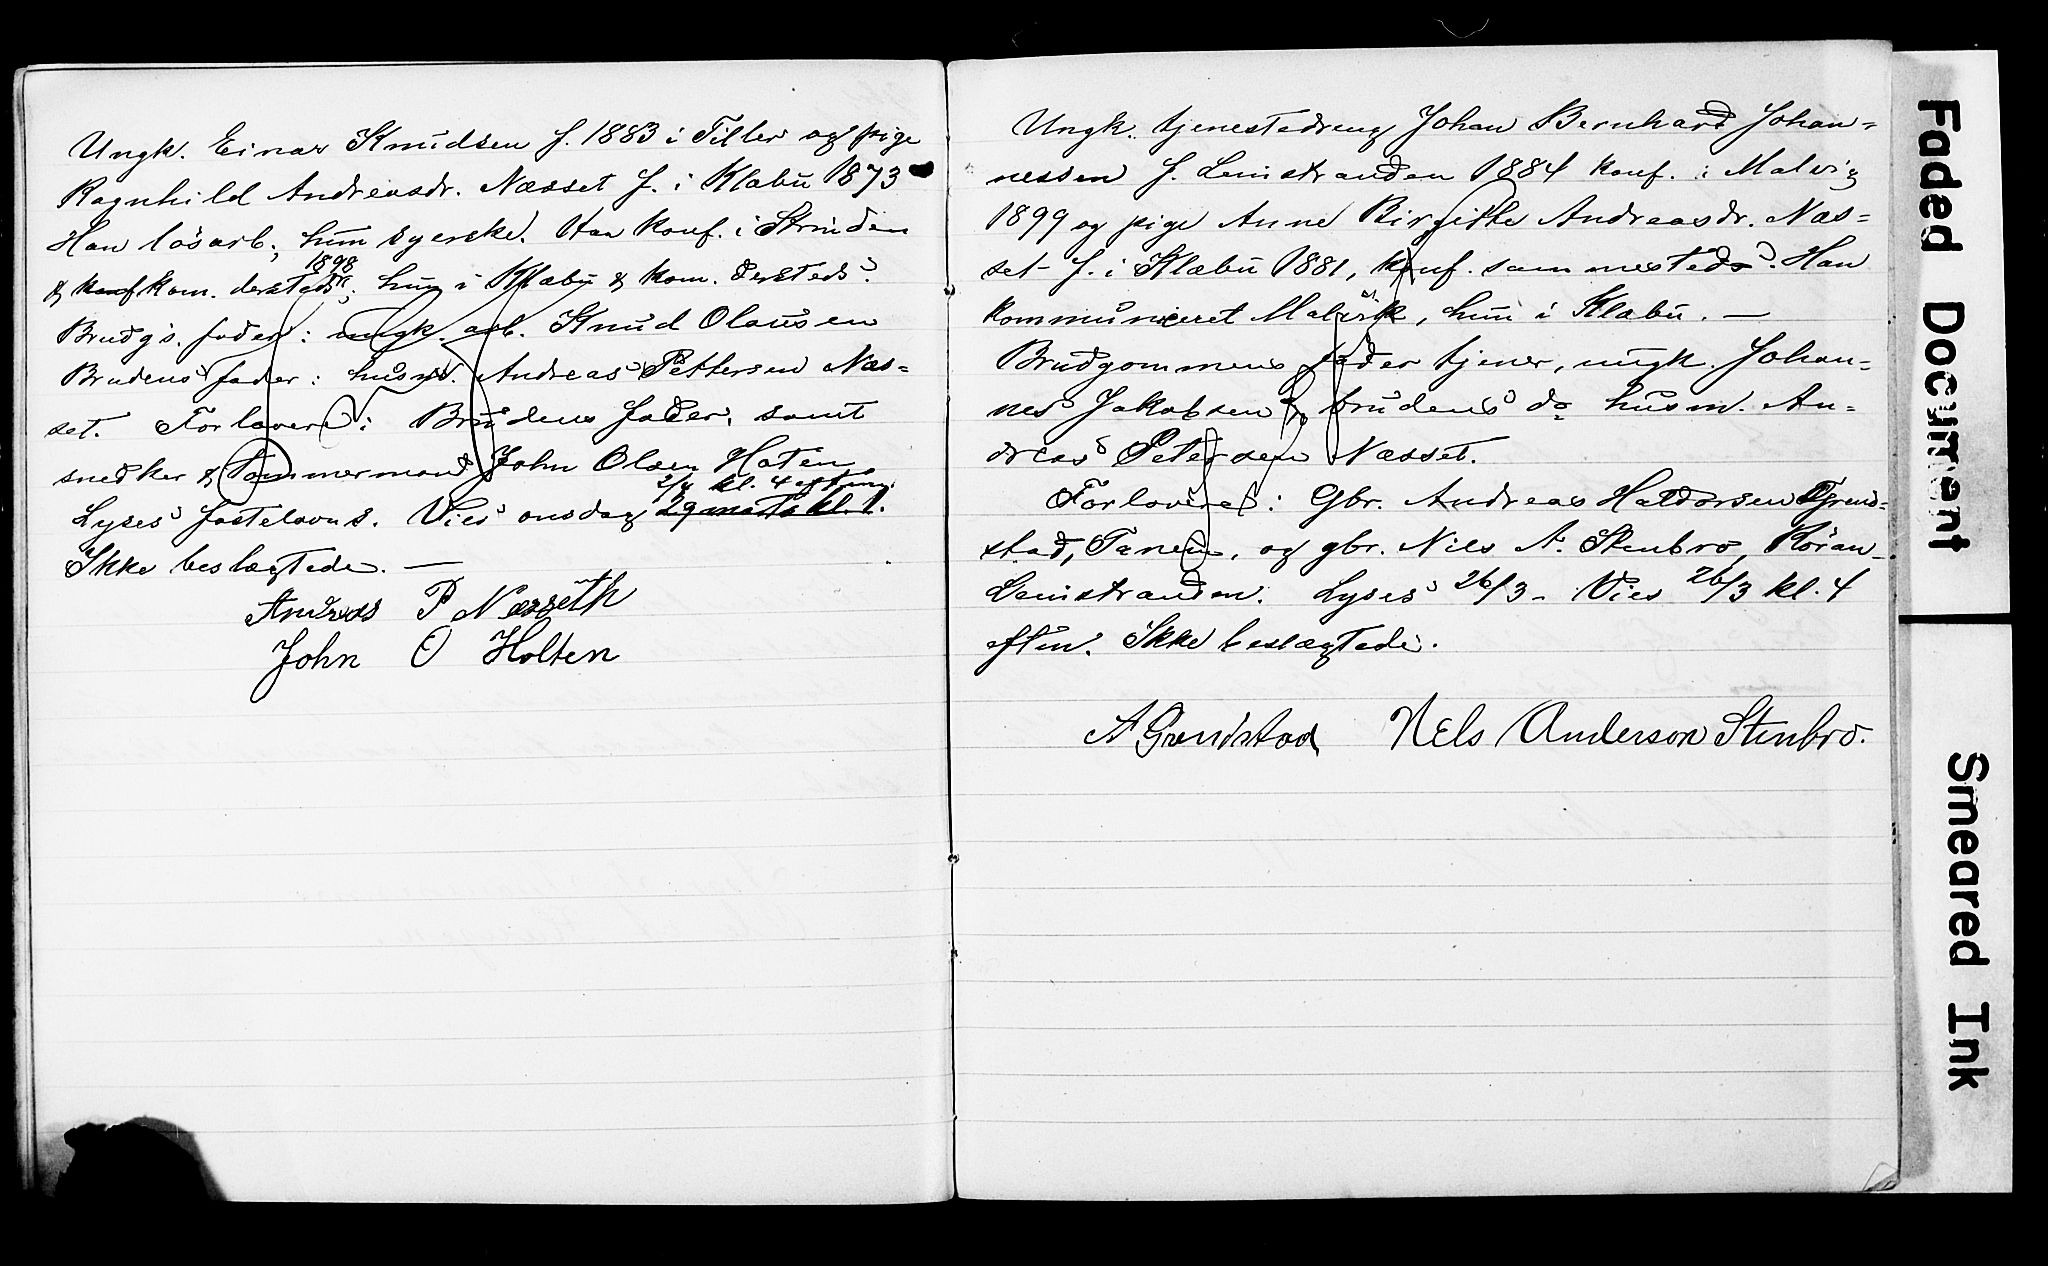 Ungk. Einar Knudsen f. 1883 i Tiller og pige
Ragnhild Andreasdr. Næsset f. i Klæbu 1873
Han løsarb.; hun syerske. Han konf. i Strinden
1898
& konf kom. dersteds; hun i Klæbu & kom. dersteds.
Brudg's. fader: ungk. arb. Knud Olausen
Brudens fader: husm. Andreas Pettersen Næs=
set. Forlovere: Brudens fader, samt
snedker & Tømmermand John Olsen Hoten
2/4 kl. 4 efterm.
Lyses fastelavns. Vies onsdag 29 mars kl. 1.
Ikke beslægtede. —
Andreas P Næsseth
John O Holten
Ungk. tjenestedreng Johan Bernhard Johan=
nessen f. Leinstranden 1884 konf. i Malvig
1899 og pige Anne Birgitte Andreasdr. Næs=
set f. i Klæbu 1881, konf. sammesteds. Han
kommuniceret Malvik, hun i Klæbu. —
Brudgommens fader tjener, ungk. Johan=
nes Jakobsen & brudens do husm. An=
dreas Petersen Næsset.
Forlovere: Gbr. Andreas Haldorsen Grend=
stad, Tanem, og gbr. Nils A. Stenbro, Röran
Leinstranden. Lyses 26/3 - Vies 26/3 kl. 4
eftm. Ikke beslægtede.
A Grendstad Nels Anderson Stenbro.
Faded Document
Smeared Ink